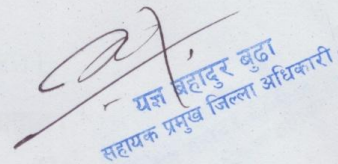 यज्ञ बहादुर बुढा
सहायक प्रमुख जिल्ला अधिकारी